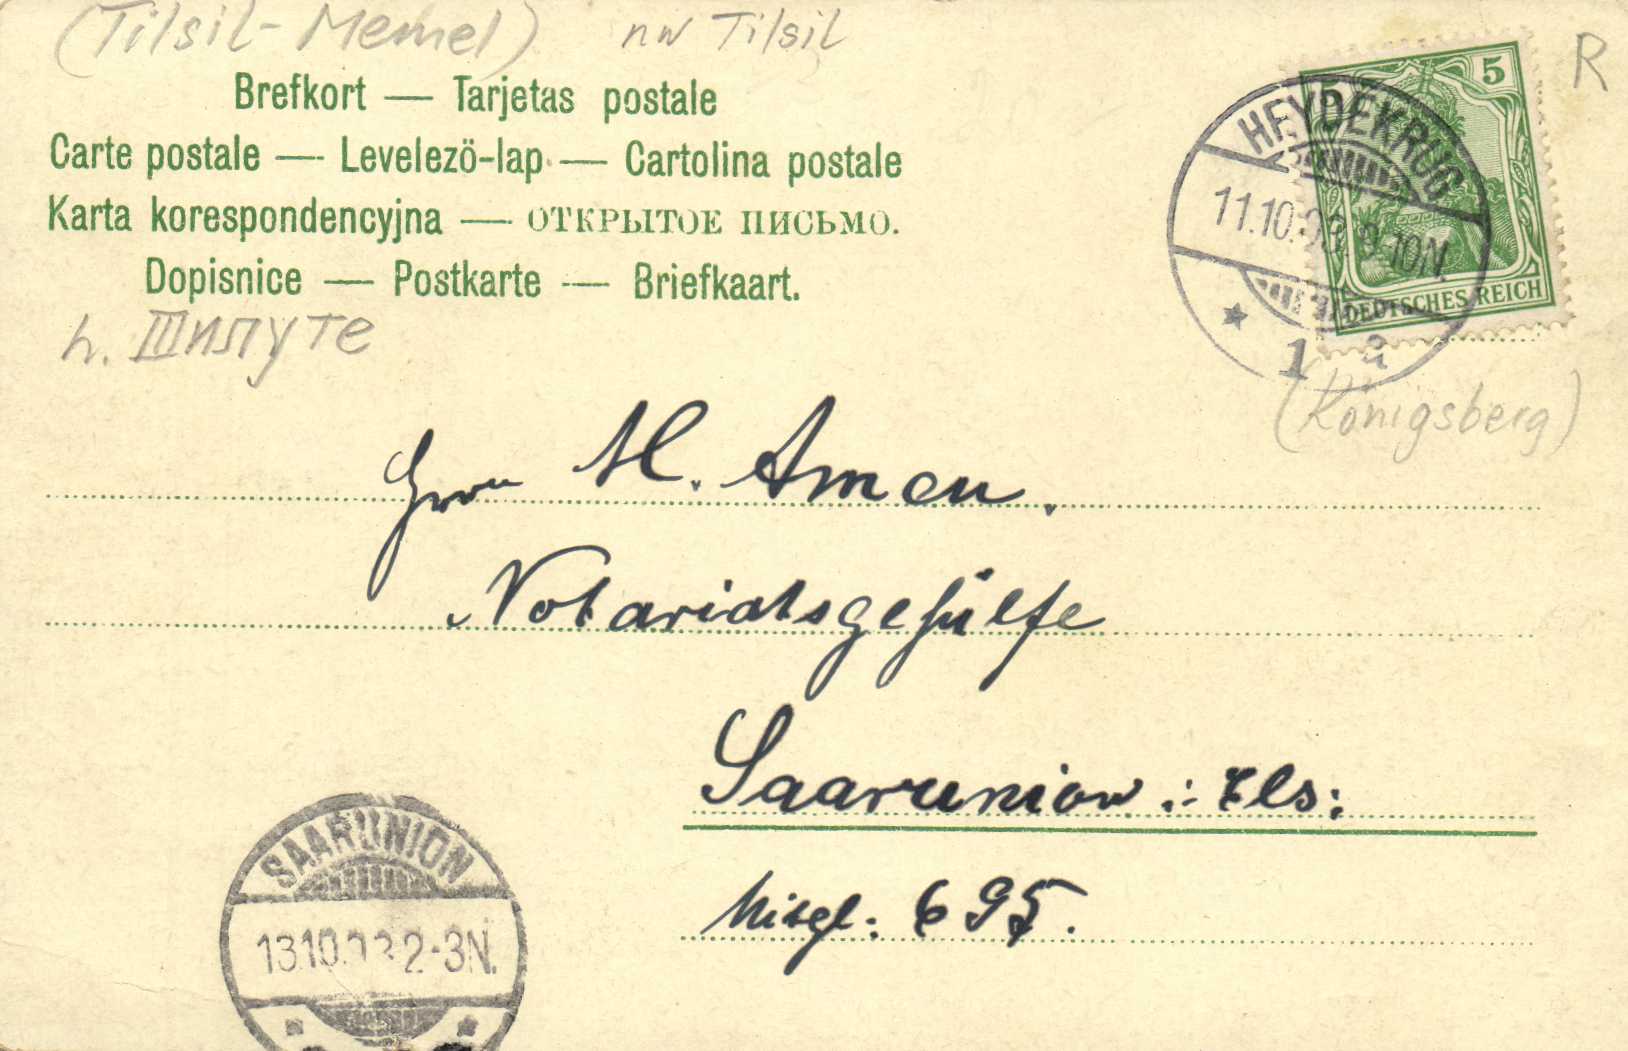 (Tilsit-Memel) nw Tilsit
R
Brefkort — Tarjetas postale
Carte postale — Levelező-lap — Cartolina postale
Karta korespondencyjna — ОТКРЫТОЕ ПИСЬМО.
Dopisnice — Postkarte — Briefkaart.
h. Шилуте
5
DEUTSCHES REICH
HEYDEKRUG
11.10. 9-10N.
* 1 a
(Königsberg)
Herrn M. Amen.
Notariatsgehülfe
Saarunion i. Els:
Mitgl: 695.
SAARUNION
13.10. 2-3N.